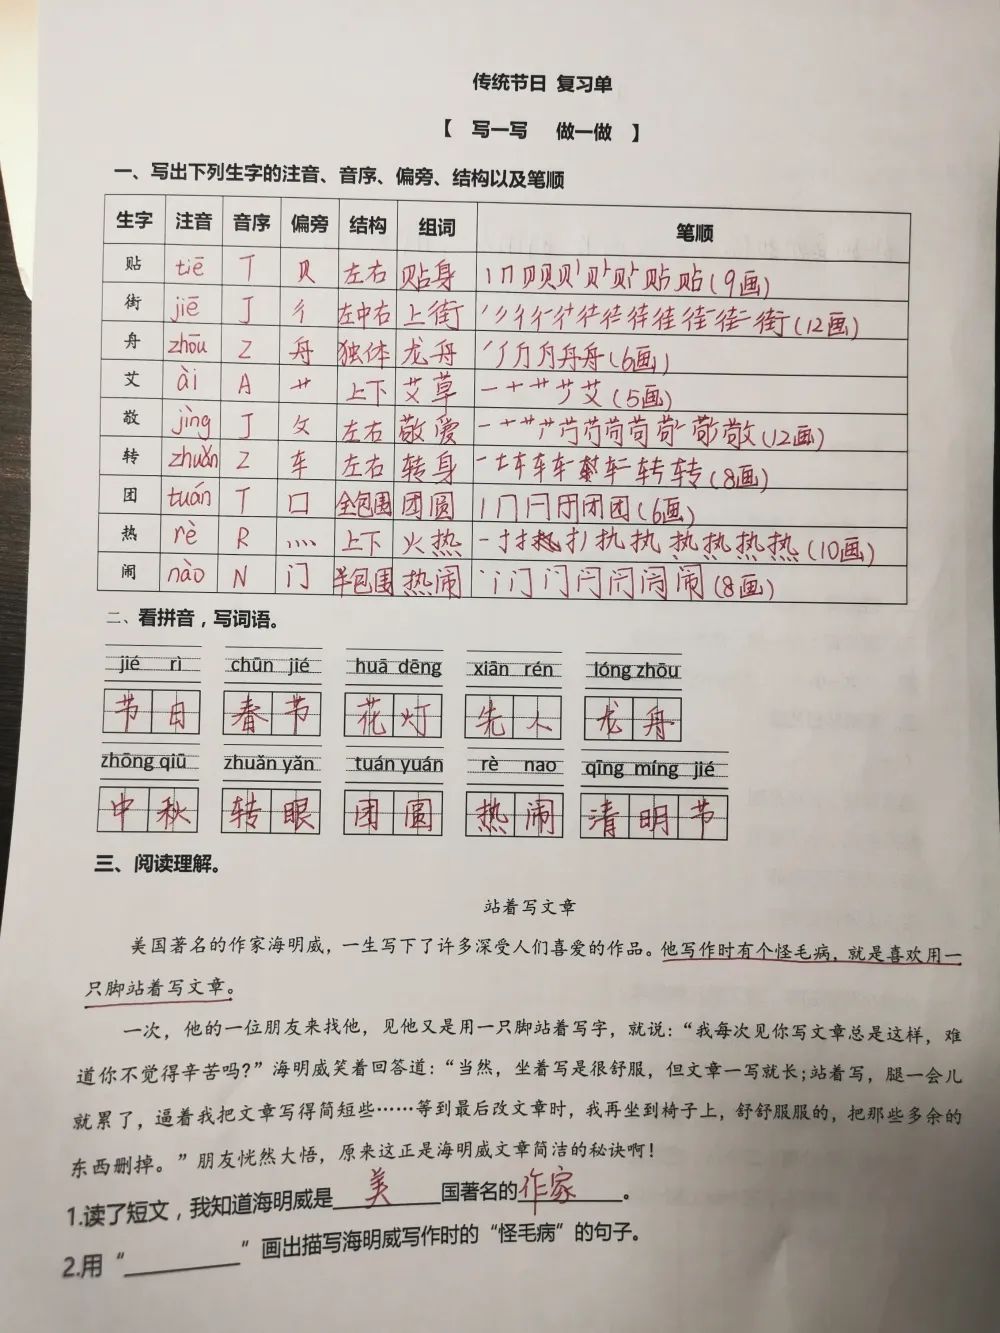 传统节日 复习单
【 写一写 做一做 】
一、写出下列生字的注音、音序、偏旁、结构以及笔顺
生字 注音 音序 偏旁 结构 组词 笔顺
贴 tiē T 贝 左右 贴身 (9画)
街 jiē J 彳 左中右 上街 (12画)
舟 zhōu Z 舟 独体 龙舟 (6画)
艾 ài A 艹 上下 艾草 (5画)
敬 jìng J 攵 左右 敬爱 (12画)
转 zhuǎn Z 车 左右 转身 (8画)
团 tuán T 囗 全包围 团圆 (6画)
热 rè R 灬 上下 火热 (10画)
闹 nào N 门 半包围 热闹 (8画)
二、看拼音，写词语。
jié rì chūn jié huā dēng xiān rén lóng zhōu
节日 春节 花灯 先人 龙舟
zhōng qiū zhuǎn yǎn tuán yuán rè nao qīng míng jié
中秋 转眼 团圆 热闹 清明节
三、阅读理解。
站着写文章
美国著名的作家海明威，一生写下了许多深受人们喜爱的作品。他写作时有个怪毛病，就是喜欢用一
只脚站着写文章。
一次，他的一位朋友来找他，见他又是用一只脚站着写字，就说：“我每次见你写文章总是这样，难
道你不觉得辛苦吗?”海明威笑着回答道：“当然，坐着写是很舒服，但文章一写就长;站着写，腿一会儿
就累了，逼着我把文章写得简短些……等到最后改文章时，我再坐到椅子上，舒舒服服的，把那些多余的
东西删掉。”朋友恍然大悟，原来这正是海明威文章简洁的秘诀啊!
1.读了短文，我知道海明威是美国著名的作家。
2.用“________”画出描写海明威写作时的“怪毛病”的句子。